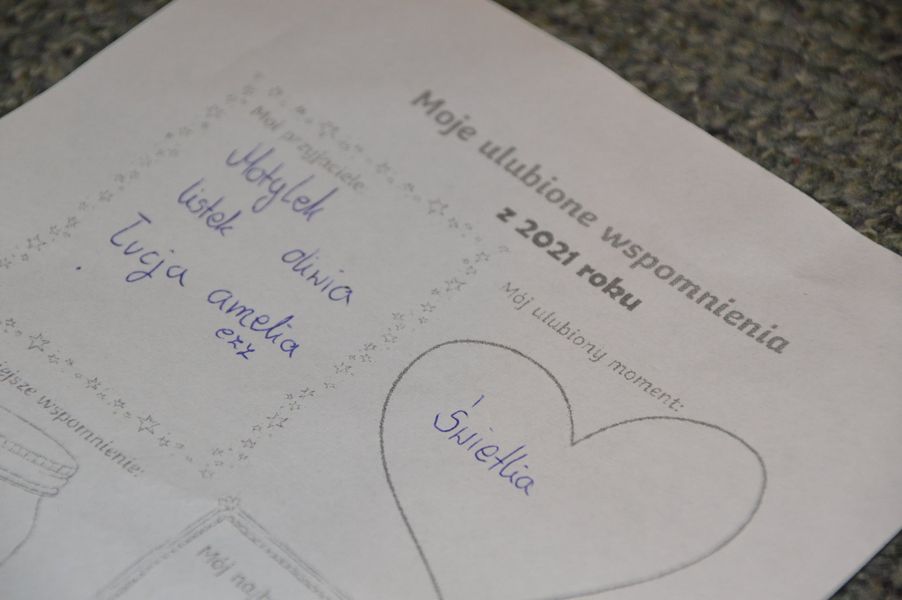 Moje ulubione wspomnienia
z 2021 roku
Moi przyjaciele:
Motylek
listek oliwia
Łucja amelia
ezz
Mój ulubiony moment:
Świetlia
wspomnienie:
Mój